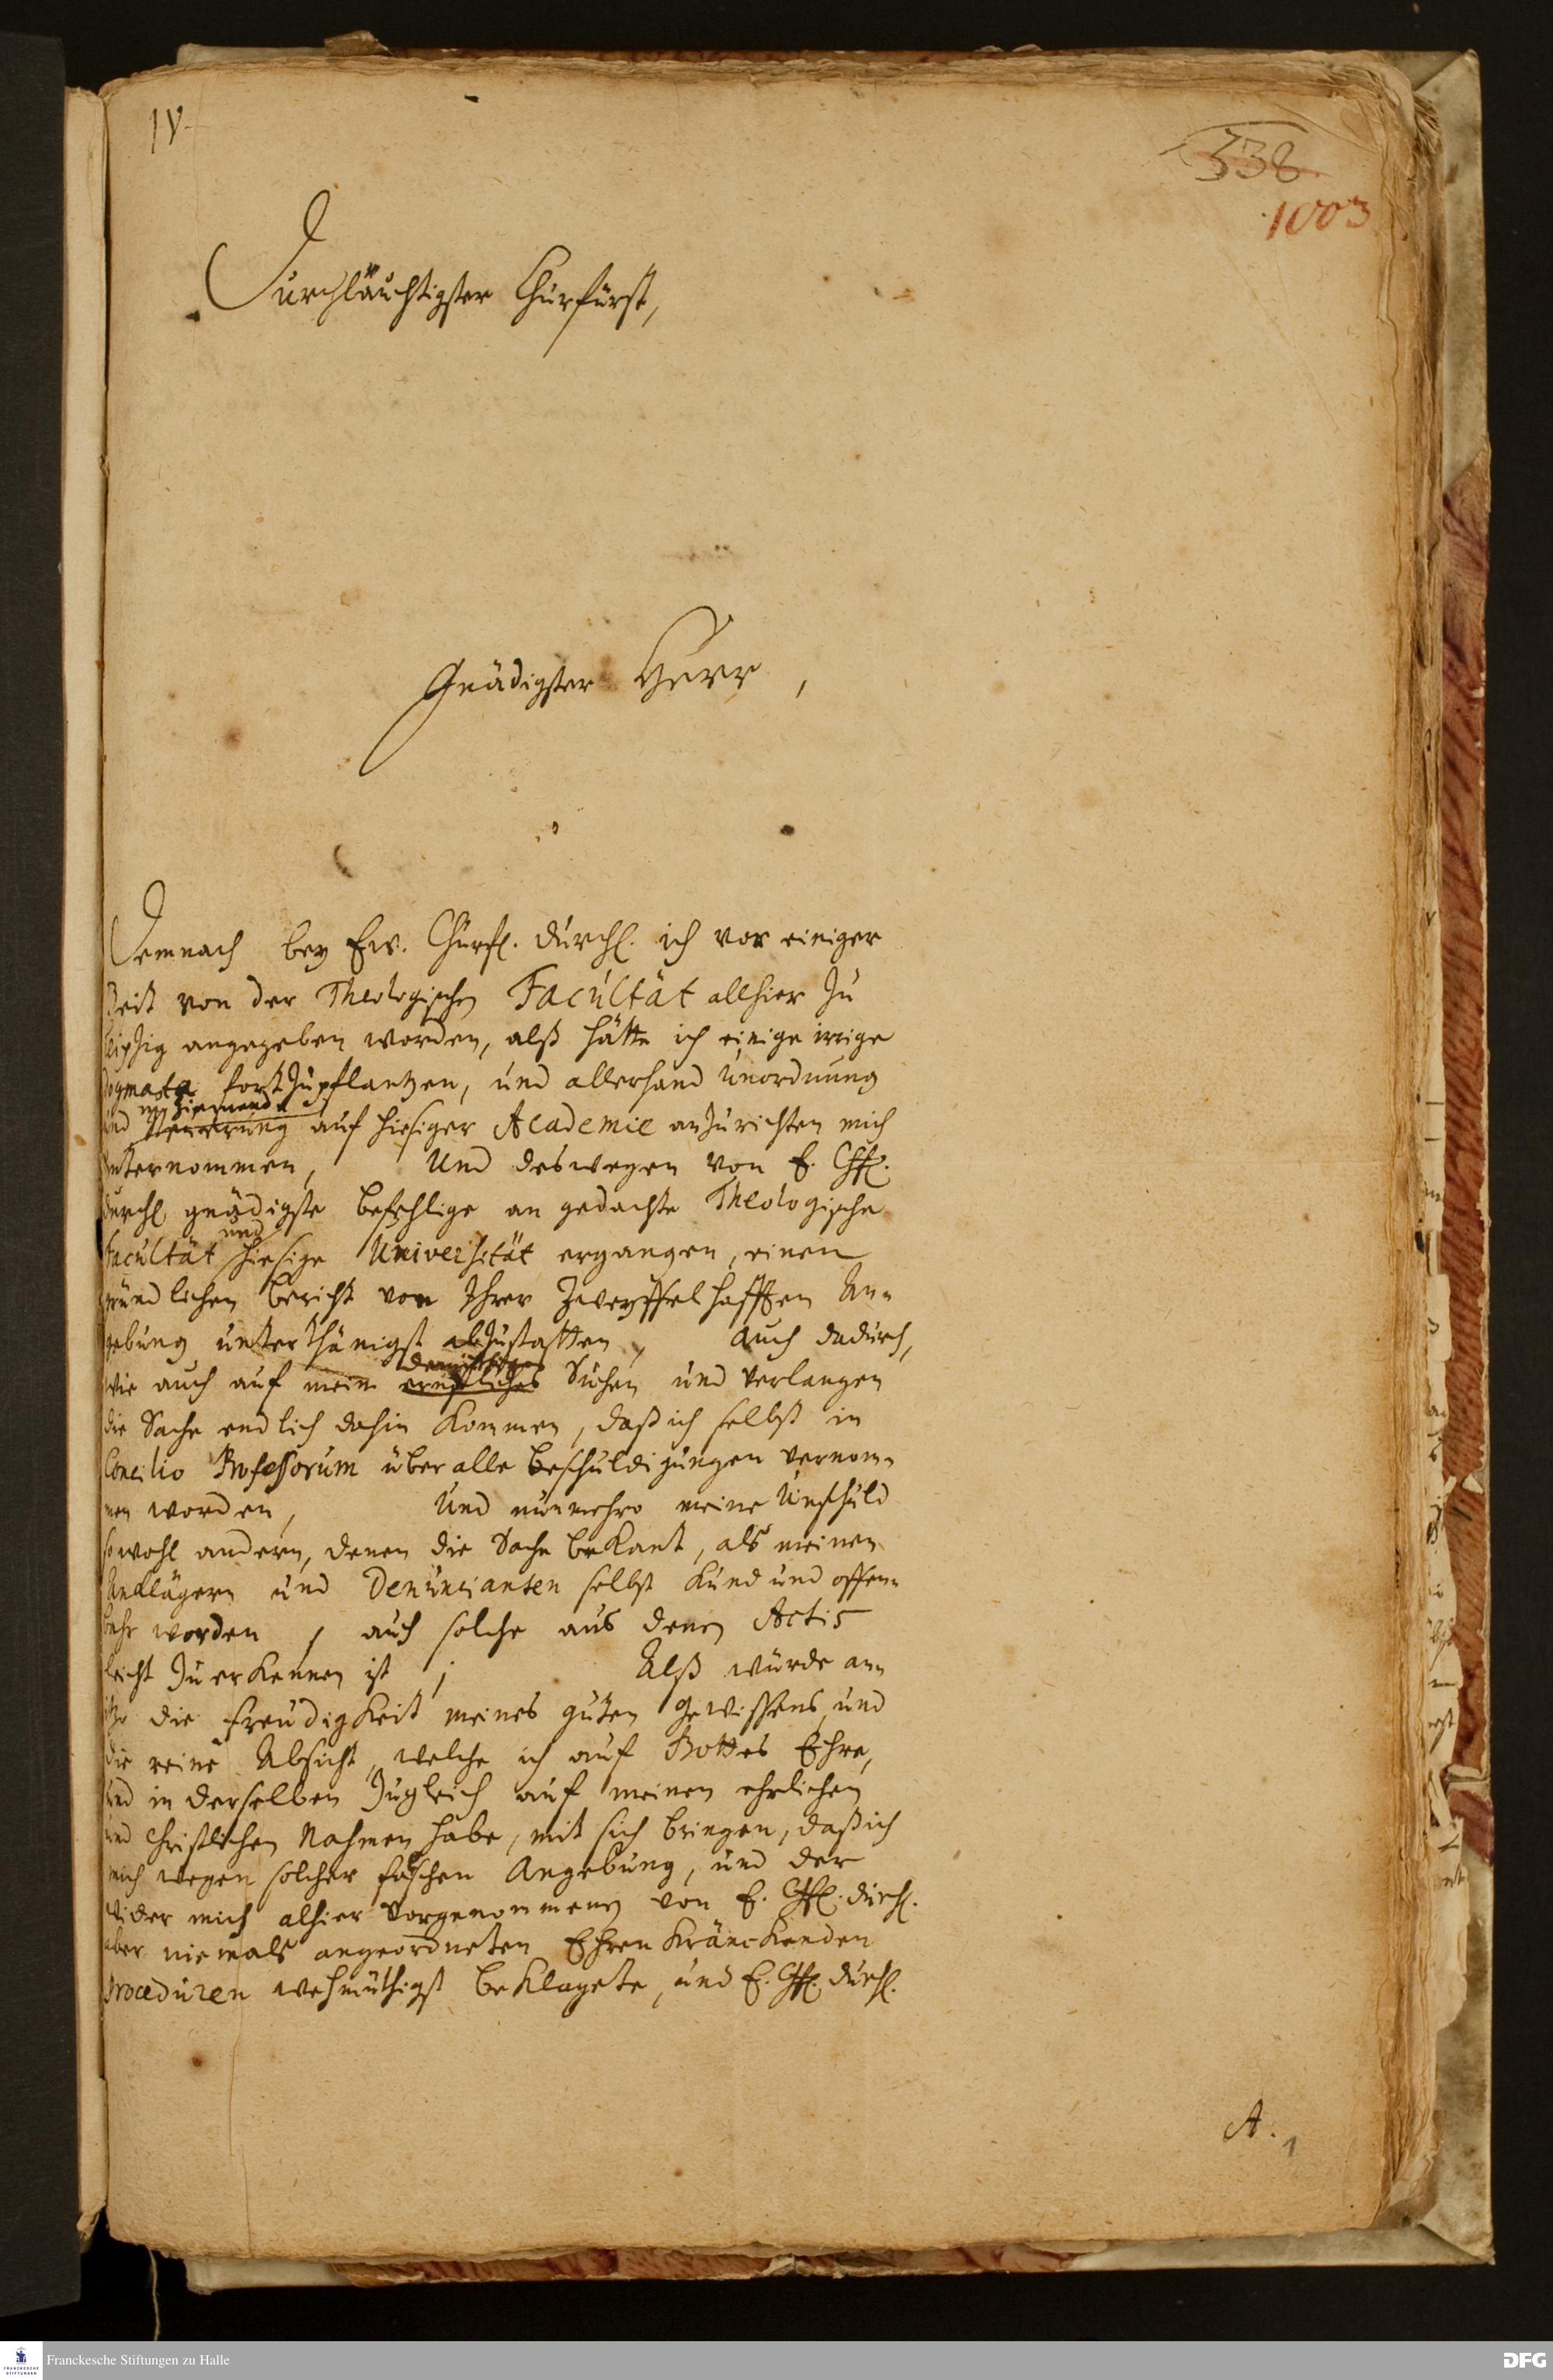 IV
338
1003
Durchläuchtigster Churfürst,
Gnädigster Herr,
Demnach bey Ew. Churfl. Durchl. ich vor einiger
Zeit von der Theologischen Facultät allhier zu
Leipzig angegeben worden, alß hätte ich einige irrige
Dogmata fortzupflantzen, und allerhand Unordnung
und Neuerung auf hiesiger Academie anzurichten mich
unternommen, Und deswegen von E. Chfl.
Durchl gnädigste Befehlige an gedachte Theologische
und
Facultät hiesige Universität ergangen, einen
gründlichen Bericht von Ihrer Zweyffelhafften An-
gebung unterthänigst abzustatten, auch dadurch,
demüthiges
wie auch auf mein ernstliches Suchen und Verlangen
die Sache endlich dahin kommen, daß ich selbst in
Concilio Professorum über alle Beschuldigungen vernom-
men worden, Und nunmehro meine Unschuld
sowohl andern, denen die Sache bekant, als meinen
Anklägern und Denuncianten selbst kund und offen-
bahr worden, auch solche aus denen Actis
leicht zu erkennen ist; Alß würde an-
itzo die Freudigkeit meines guten Gewissens, und
die reine Absicht, welche ich auf Gottes Ehre,
und in derselben zugleich auf meinen ehrlichen
und Christlichen Nahmen habe, mit sich bringen, daß ich
mich wegen solcher falschen Angebung, und der
wider mich alhier vorgenommenen von E. Chfl. Durchl.
aber niemals angeordneten Ehrenkränckenden
Proceduren wehmüthigst beklagete, und E. Chfl. Durchl.
A. 1
Franckesche Stiftungen zu Halle
DFG